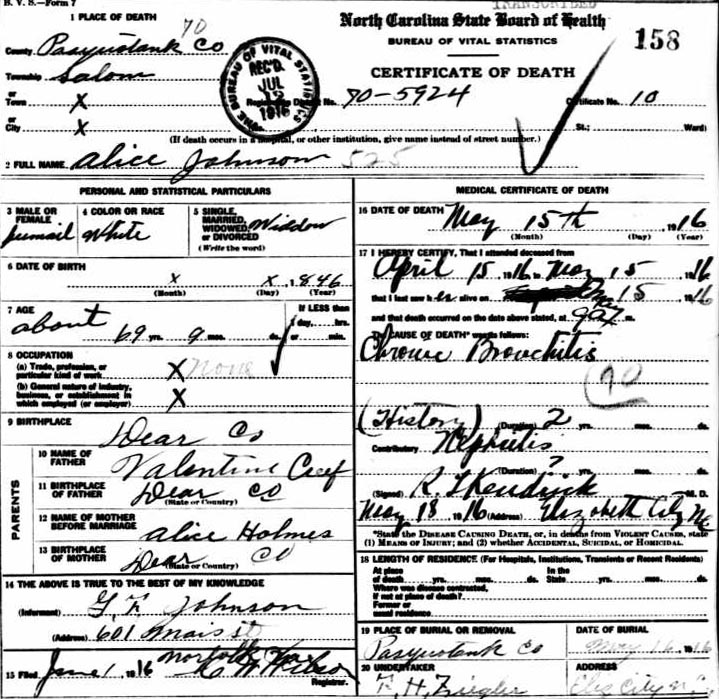 B. V. S.—Form 7
TRANSCRIBED
1 PLACE OF DEATH 70
County Pasquotank Co
Township Salom
or
Town X
or
City X
North Carolina State Board of Health
BUREAU OF VITAL STATISTICS
CERTIFICATE OF DEATH
158
THE BUREAU OF VITAL STATISTICS
REC'D.
JUL
12
1916
Registration District No. 70-5924 Certificate No. 10
St.; Ward)
(If death occurs in a hospital, or other institution, give name instead of street number.)
2 FULL NAME Alice Johnson 525
PERSONAL AND STATISTICAL PARTICULARS
3 MALE OR FEMALE fumail
4 COLOR OR RACE White
5 SINGLE, MARRIED, WIDOWED, or DIVORCED Widdow
(Write the word)
6 DATE OF BIRTH
x x, 1846
(Month) (Day) (Year)
7 AGE
about 69 yrs. 9 mos. ds.
If LESS than
1 day, hrs.
or min.
8 OCCUPATION
(a) Trade, profession, or
particular kind of work X None
(b) General nature of industry,
business, or establishment in
which employed (or employer) X
9 BIRTHPLACE
Dear Co
PARENTS
10 NAME OF FATHER Valentine Creef
11 BIRTHPLACE OF FATHER Dear Co
(State or Country)
12 NAME OF MOTHER BEFORE MARRIAGE Alice Holmes
13 BIRTHPLACE OF MOTHER Dear Co
(State or Country)
14 THE ABOVE IS TRUE TO THE BEST OF MY KNOWLEDGE
(Informant) G. F. Johnson
(Address) 601 Mais st
Norfolk Va
15 Filed June 1 1916
Registrar.
MEDICAL CERTIFICATE OF DEATH
16 DATE OF DEATH May 15th, 1916
(Month) (Day) (Year)
17 I HEREBY CERTIFY, That I attended deceased from
April 15 1916 to May 15 1916
that I last saw her alive on May 15 1916
and that death occurred on the date above stated, at 9 a m.
The CAUSE OF DEATH* was as follows:
Chronic Bronchitis
90
(History) (Duration) 2 yrs. mos. ds.
Contributory Nephritis
(Duration) ? yrs. mos. ds.
(Signed) R. L. Kendrick M. D.
May 18 1916 (Address) Elizabeth City NC
*State the DISEASE CAUSING DEATH, or, in deaths from VIOLENT CAUSES, state
(1) MEANS OF INJURY; and (2) whether ACCIDENTAL, SUICIDAL, or HOMICIDAL.
18 LENGTH OF RESIDENCE (For Hospitals, Institutions, Transients or Recent Residents)
At place In the
of death yrs. mos. ds. State yrs. mos. ds.
Where was disease contracted,
if not at place of death?
Former or
usual residence
19 PLACE OF BURIAL OR REMOVAL
Pasquotank Co
DATE OF BURIAL
May 16 1916
20 UNDERTAKER
F. H. Ziegler
ADDRESS
Eliz City N.C.